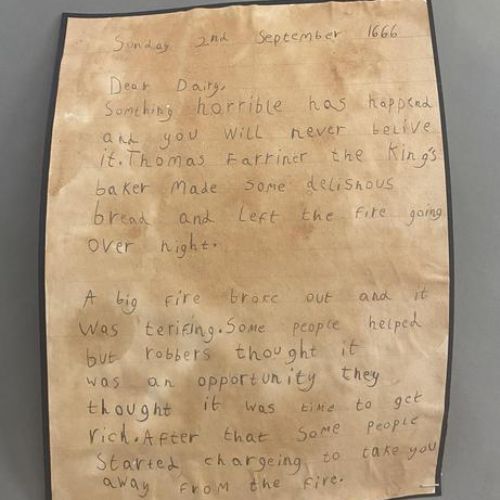 Sunday 2nd September 1666
Dear Dairy,
Somthing horrible has happend
and you will never belive
it. Thomas Farriner the King's
baker made some delishous
bread and left the fire going
over night.
A big fire broke out and it
was terifing. Some people helped
but robbers thought it
was an opportunity they
thought it was time to get
rich. After that some people
started chargeing to take you
away from the fire.